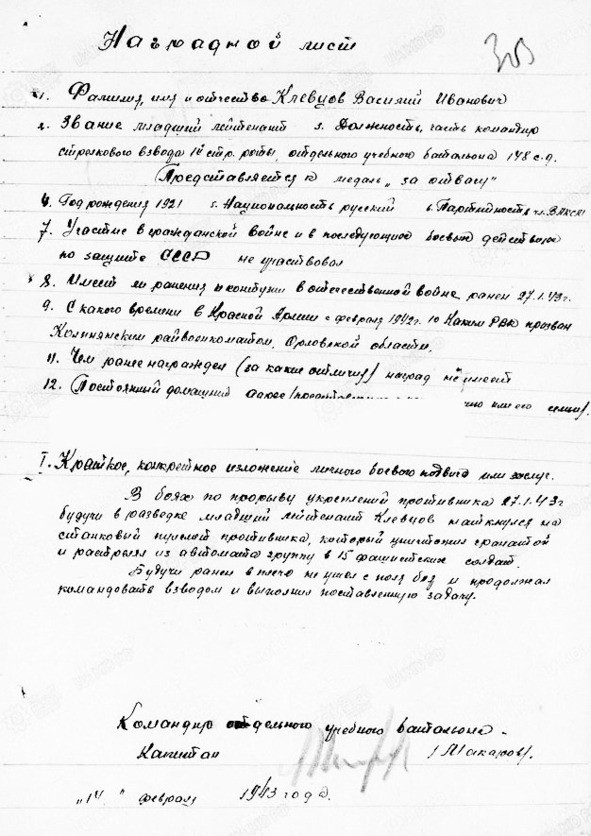 Наградной лист
1. Фамилия, имя и отчество Клевцов Василий Иванович
2. Звание младший лейтенант 3. Должность, часть командир
стрелкового взвода 1й стр. роты, отдельного учебного батальона 148 с.д.
Представляется к медаль „за отвагу"
4. Год рождения 1921 5. Национальность русский 6. Партийность чл. ВЛКСМ
7. Участие в гражданской войне и в последующих боевых действиях
по защите СССР не участвовал
8. Имеет ли ранения и контузии в отечественной войне ранен 27.1.43г.
9. С какого времени в Красной Армии с февраля 1942г. 10 Каким РВК призван
Колпнянским райвоенкоматом, Орловской области.
11. Чем ранее награжден (за какие отличия) наград не имеет
12. Постоянный домашний адрес его семьи).
I. Краткое, конкретное изложение личного боевого подвига или заслуг.
В боях по прорыву укреплений противника 27.1.43г
будучи в разведке младший лейтенант Клевцов наткнулся на
станковый пулемет противника, который уничтожил гранатой
и растрелял из автомата группу в 15 фашистских солдат.
Будучи ранен в плечо не ушел с поля боя и продолжал
командовать взводом и выполнил поставленную задачу.
Командир отдельного учебного батальона -
Капитан /Макаров/.
„14" февраля 1943 год.